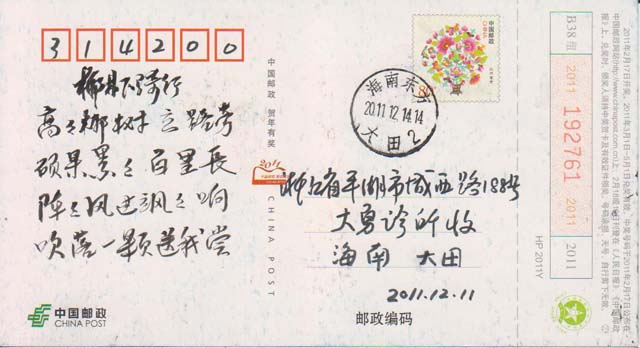 314200
椰林下骑行
高々椰树立路旁
硕果累々百里長
阵々风过飒々响
吹落一颗送我尝
中国邮政
CHINA POST
中国邮政 贺年有奖
2011
CHINA POST
中国邮政
CHINA
海南东方
2011.12.14.14
大田2
浙江省平湖市城西路188号
大勇诊所收
海南 大田
2011.12.11
邮政编码
B38组
2011
192761
2011
2011
HP 2011Y